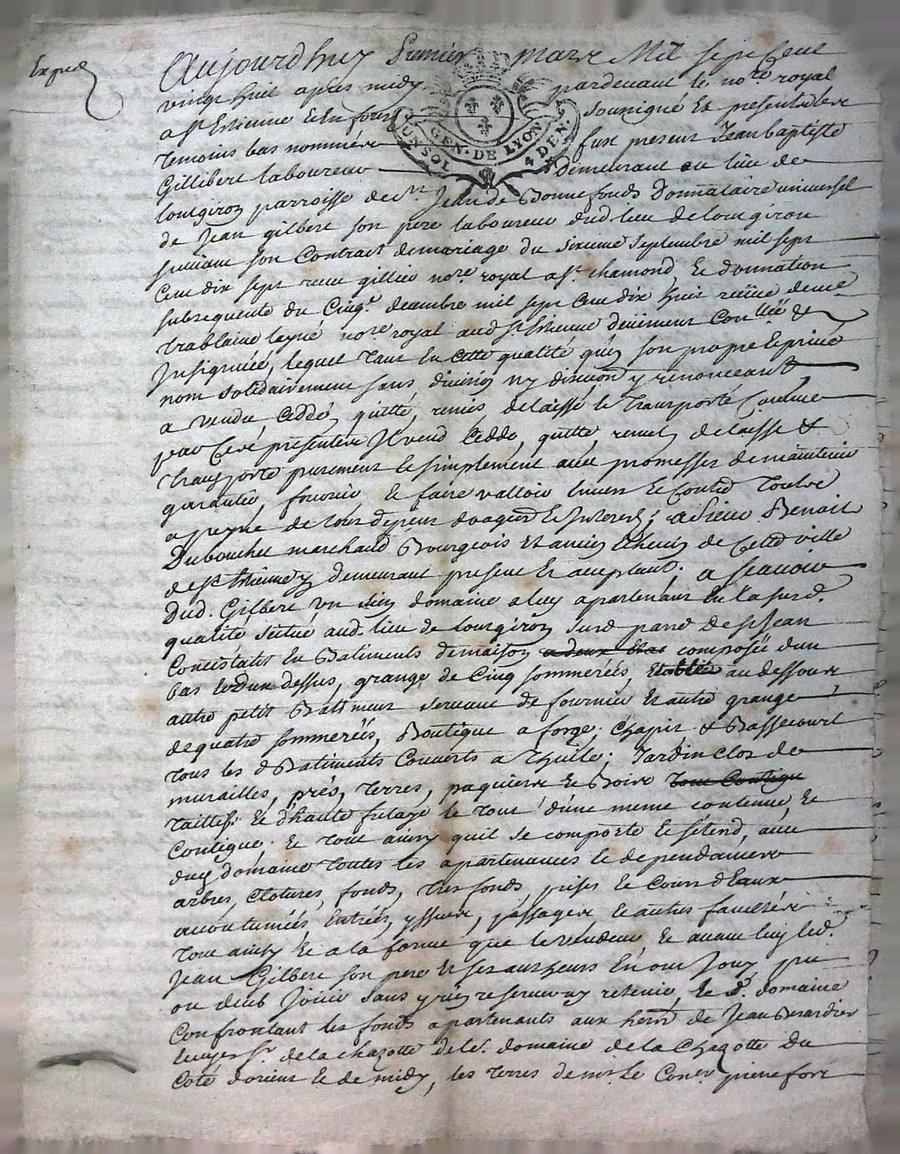 Exped
Aujourdhuy Premier mars Mil sept Cent
vingt huit apres midy pardevant le nore royal
a st Estienne En forest soussigné Et presents les
temoins bas nommés fut present Jean baptiste
Gillibert laboureur demeurant au lieu de
lourgiron parroisse de st Jean de Bonnefonds Donnataire universel
de Jean gilbert son pere laboureur dud. lieu de lourgiron
suivant son Contract de mariage du sixieme septembre mil sept
Cent dix sept receu gillier nore royal a st chamond, Et donnation
subsequente du Cinqe decembre mil sept Cent dix huit receüe de me
trablaine layné nore royal aud st Estienne deüement Conllée &
Insignüée, lequel tant En Cette qualité qu'en son propre Et privé
nom solidairement sans division ny discution y renonceant,
a vendu, Cedde, quitté, remis, delaissé Et transporté Comme
par Ces presentes Il vend Cedde, quitte, remet, delaisse &
transporte purement Et simplement avec promesses de maintenir
garantir, fournir Et faire valloir Envers Et Contre Toutes
a peyne de tous depens domages Et Interests; a sieur Benoit
Dubouchet marchand Bourgeois Et ancien Echevin de Cette ville
de st Estienne y demeurant present Et acceptant. a sçavoir
Dud. Gilbert un sien domaine a luy apartenant En la susd.
qualité scitué aud. lieu de lourgiron susd parr. de st Jean
Concistant En Batiments de maison a deux composée d'un
bas Et d'un dessus, grange de Cinq sommerées, Etables au dessous
autre petit Batiment servant de fournier Et autre grange
de quatre sommerées, Boutique a forge, Chapit & Bassecourt
tous les d Batiments Couverts a Thuille; Jardin Clos de
murailles, prés, Terres, paquiers Et Bois tout Contigu
Taillis Et d'haute futaye le tout d'une meme contenue, Et
Contigue. Et tout ainsy quil se comporte Et s'étend, avec
dud domaine toutes les apartenances Et dependances
arbres, Clotures, fonds, tres fonds, prises Et Cours d'Eaux
accoutumées Entrées, yssues, passages Et autres facultés
tout ainsy Et a la forme que le vendeur, Et avant luy led.
Jean Gilbert son pere Et ses autheurs En ont Jouy pu
ou deub Joüir sans y rien reserver ny retenir, led. domaine
Confrontant les fonds apartenants aux heirs de Jean Berardier
Ecuyer sr de la chazotte dele. domaine de la Chazotte Du
Coté dorient Et de midy, les Terres de mr. le Coner prenefort
GEN. DE LYON
UN SOL 4 DEN.